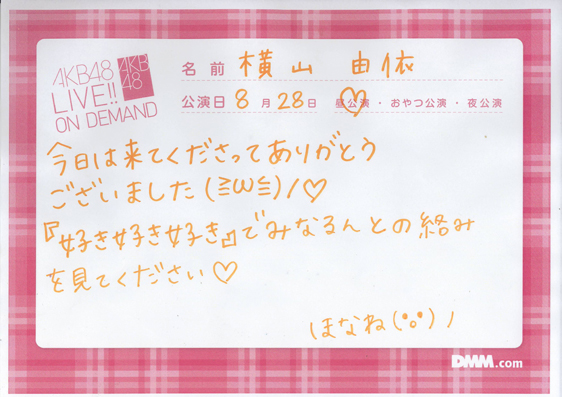 AKB48
LIVE!!
ON DEMAND
AKB
48
名前 横山 由依
公演日 8月28日 昼公演・おやつ公演・夜公演
今日は来てくださってありがとう
ございました(≧ω≦)/♡
『好き好き好き』でみなるんとの絡み
を見てください♡
ほなね(°o°)ノ
DMM.com